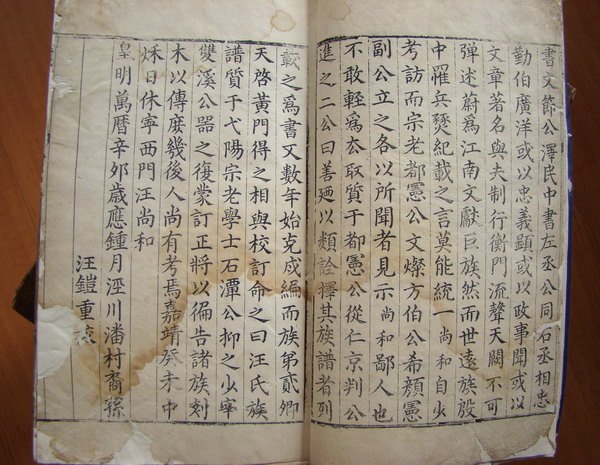 書文節公澤民中書左丞公同右丞相忠
勤伯廣洋或以忠義顯或以政事聞或以
文章著名與夫制行衡門流聲天闕不可
彈述蔚爲江南文獻巨族然而世遠族殷
中罹兵燹紀載之言莫能統一尚和自少
考訪而宗老都憲公文燦方伯公希顏憲
副公立之各以所聞者見示尚和鄙人也
不敢輕爲去取質于都憲公從仁京判公
進之二公曰善廼以類詮擇其族譜者列
載之爲書又數年始克成編而族弟貳卿
天啓黃門得之相與校訂命之曰汪氏族
譜質于弋陽宗老學士石潭公抑之少宰
雙溪公器之復蒙訂正將以徧告諸族刻
木以傳庶幾後人尚有考焉嘉靖癸未中
秌日休寧西門汪尚和
皇明萬曆辛夘歲應鍾月涇川潘村裔孫
汪鎧重